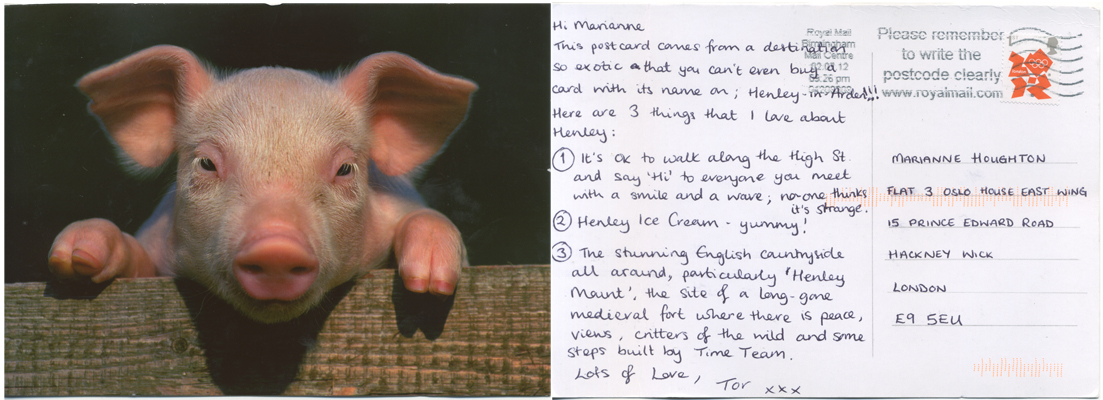 Hi Marianne
This postcard comes from a destination
so exotic that you can't even buy a
card with its name on; Henley-in-Arden!!!
Here are 3 things that I love about
Henley:
① It's ok to walk along the High St.
and say 'Hi' to everyone you meet
with a smile and a wave; no-one thinks
it's strange.
② Henley Ice Cream - yummy!
③ The stunning English countryside
all around, particularly 'Henley
Mount', the site of a long-gone
medieval fort where there is peace,
views, critters of the wild and some
steps built by Time Team.
Lots of Love,
Tor xxx
Royal Mail
Birmingham
Mail Centre
Please remember
to write the
postcode clearly
www.royalmail.com
MARIANNE HOUGHTON
FLAT 3 OSLO HOUSE EAST WING
15 PRINCE EDWARD ROAD
HACKNEY WICK
LONDON
E9 5EU